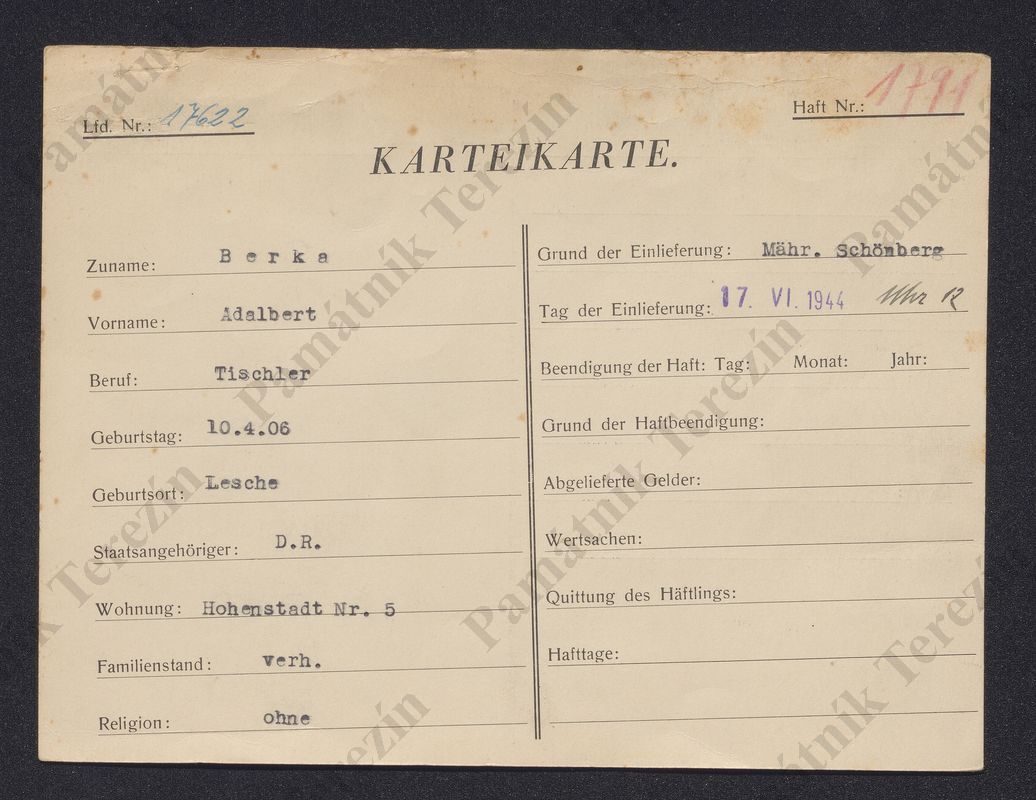 Lfd. Nr.: 17622
Haft Nr.: 1791
KARTEIKARTE.
Zuname: Berka
Vorname: Adalbert
Beruf: Tischler
Geburtstag: 10.4.06
Geburtsort: Lesche
Staatsangehöriger: D.R.
Wohnung: Hohenstadt Nr. 5
Familienstand: verh.
Religion: ohne
Grund der Einlieferung: Mähr. Schönberg
Tag der Einlieferung: 17. VI. 1944 Uhr 12
Beendigung der Haft: Tag: Monat: Jahr:
Grund der Haftbeendigung:
Abgelieferte Gelder:
Wertsachen:
Quittung des Häftlings:
Hafttage:
Památník Terezín